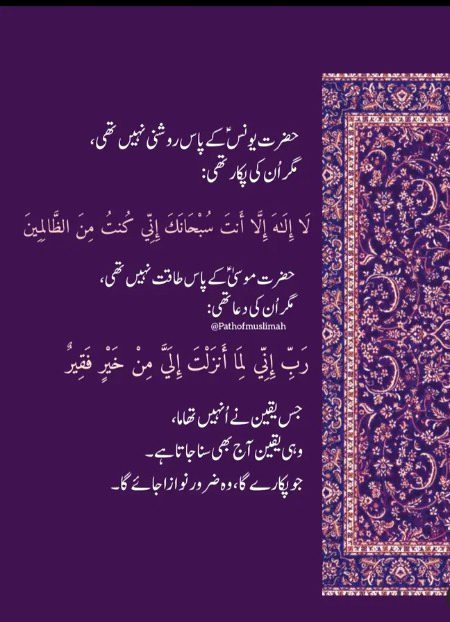 حضرت یونسؑ کے پاس روشنی نہیں تھی،
مگر اُن کی پکار تھی:
لَا إِلَـٰهَ إِلَّا أَنتَ سُبْحَانَكَ إِنِّي كُنتُ مِنَ الظَّالِمِينَ
حضرت موسیٰؑ کے پاس طاقت نہیں تھی،
مگر اُن کی دعا تھی:
@Pathofmuslimah
رَبِّ إِنِّي لِمَا أَنزَلْتَ إِلَيَّ مِنْ خَيْرٍ فَقِيرٌ
جس یقین نے اُنہیں تھاما،
وہی یقین آج بھی سنا جاتا ہے۔
جو پکارے گا، وہ ضرور نوازا جائے گا۔